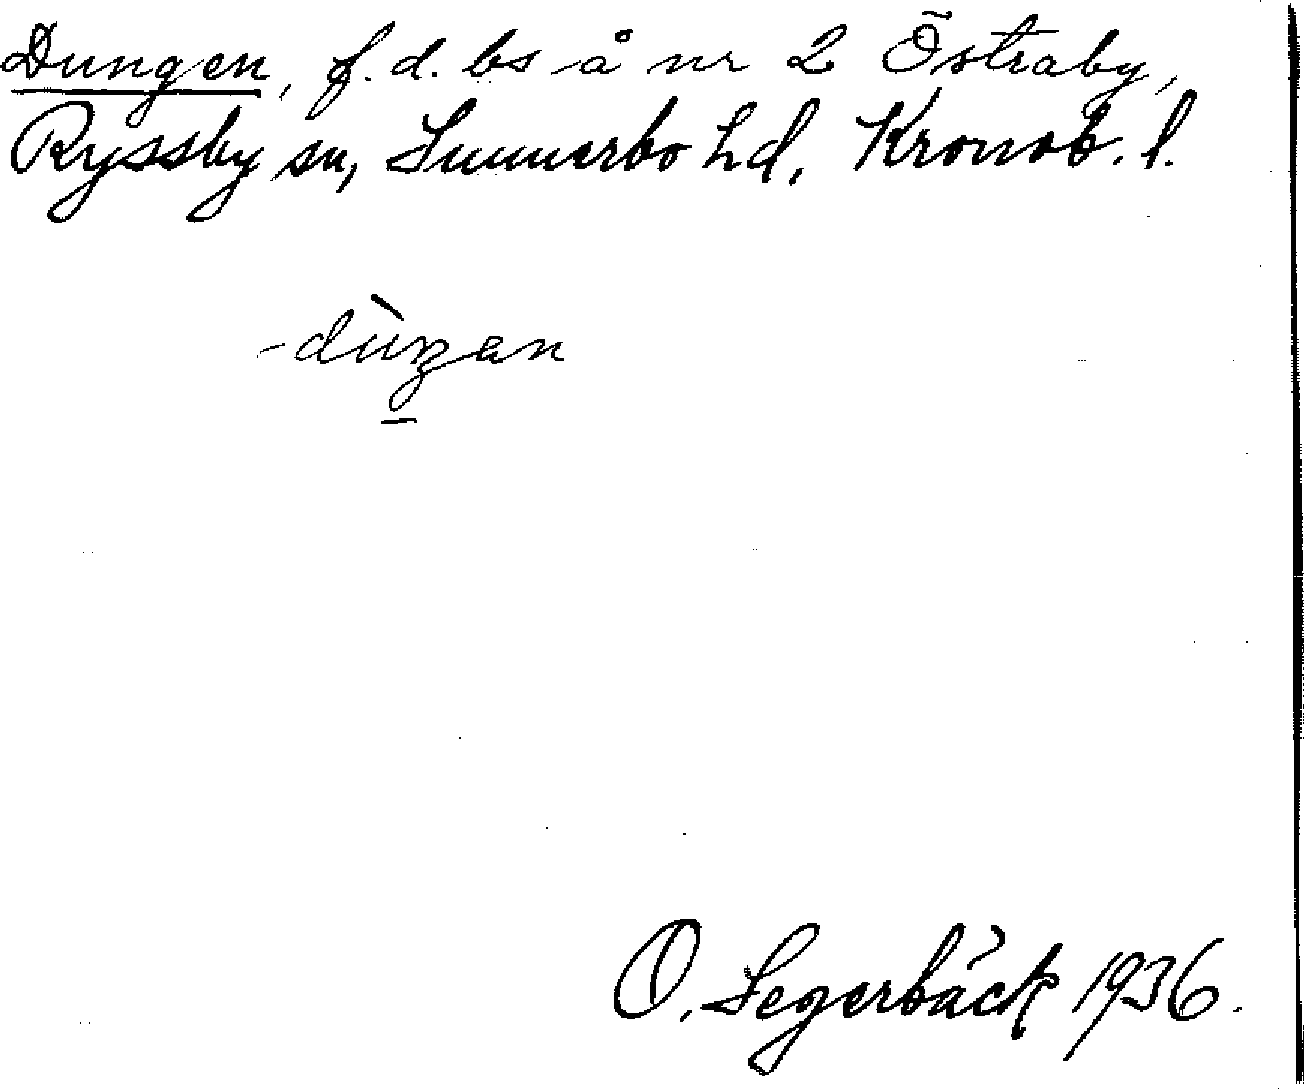 Dungen, f.d. bs å nr 2 Östraby,
Ryssby sn, Sunnerbo hd, Kronob. l.
-dùŋan
O. Segerbäck 1936.